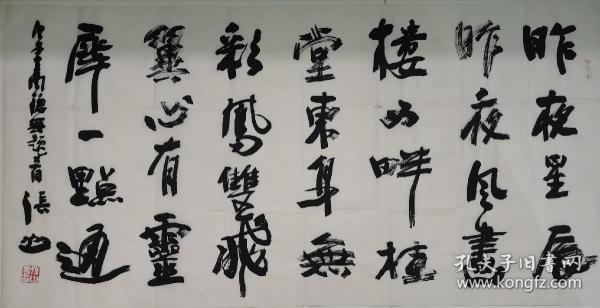 昨夜星辰
昨夜风畫
樓西畔桂
堂東身無
彩鳳雙飛
翼心有靈
犀一點通
李商隐無题
張
孔夫子旧书网
www.kongfz.com